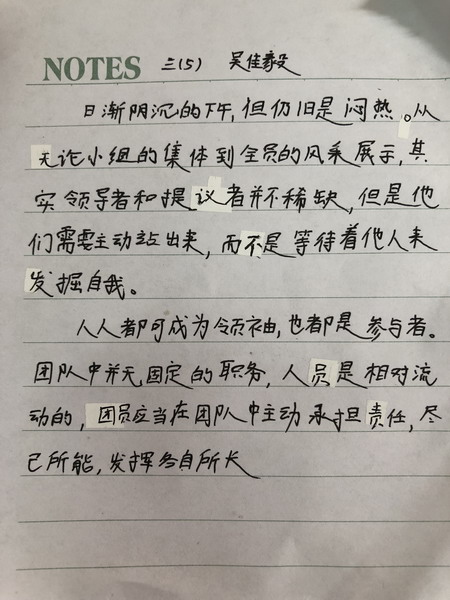 NOTES 三(5) 吴佳毅
日渐阴沉的下午,但仍旧是闷热。从
无论小组的集体到全员的风采展示,其
实领导者和提议者并不稀缺,但是他
们需要主动站出来,而不是等待着他人来
发掘自我。
人人都可成为领袖,也都是参与者。
团队中并无固定的职务,人员是相对流
动的,团员应当在团队中主动承担责任,尽
己所能,发挥各自所长